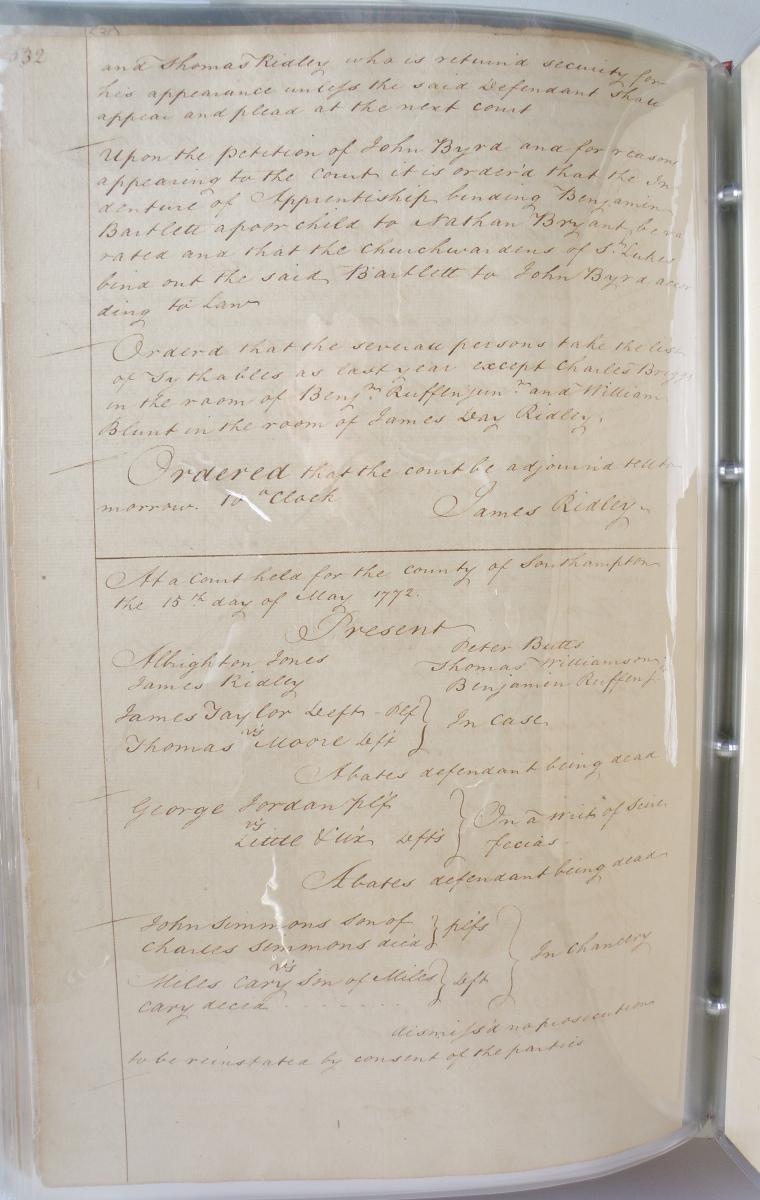 532
and Thomas Ridley who is returnd security for
his appearance unless the said Defendant shall
appear and plead at the next court
Upon the petition of John Byrd and for reasons
appearing to the court it is order'd that the In-
denture of Apprentiship binding Benjamin
Bartlett a poor child to Nathan Bryant be va
cated and that the Churchwardens of St. Lukes
bind out the said Bartlett to John Byrd accor
ding to Law
Orderd that the several persons take the list
of Tythables as last year except Charles Briggs
in the room of Benjn. Ruffin junr. and William
Blunt in the room of James Day Ridley.
Ordered that the court be adjournd till to
morrow. 10 oClock
James Ridley
At a Court held for the county of Southampton
the 15th day of May 1772.
Present
Albrighton Jones
Peter Butts
James Ridley
Thomas Williamson
Benjamin Ruffin
James Taylor Deft - Plf
vs
In Case
Thomas Moore Deft
Abates defendant being dead
George Jordan plf
vs
On a writ of Scire
Little Exix Defts
fecias
Abates defendant being dead
John Simmons Son of
Charles Simmons died
plfs
vs
In Chancery
Miles Cary Son of Miles
Cary deced
Deft
dismiss'd no prosecution
to be reinstated by consent of the parties